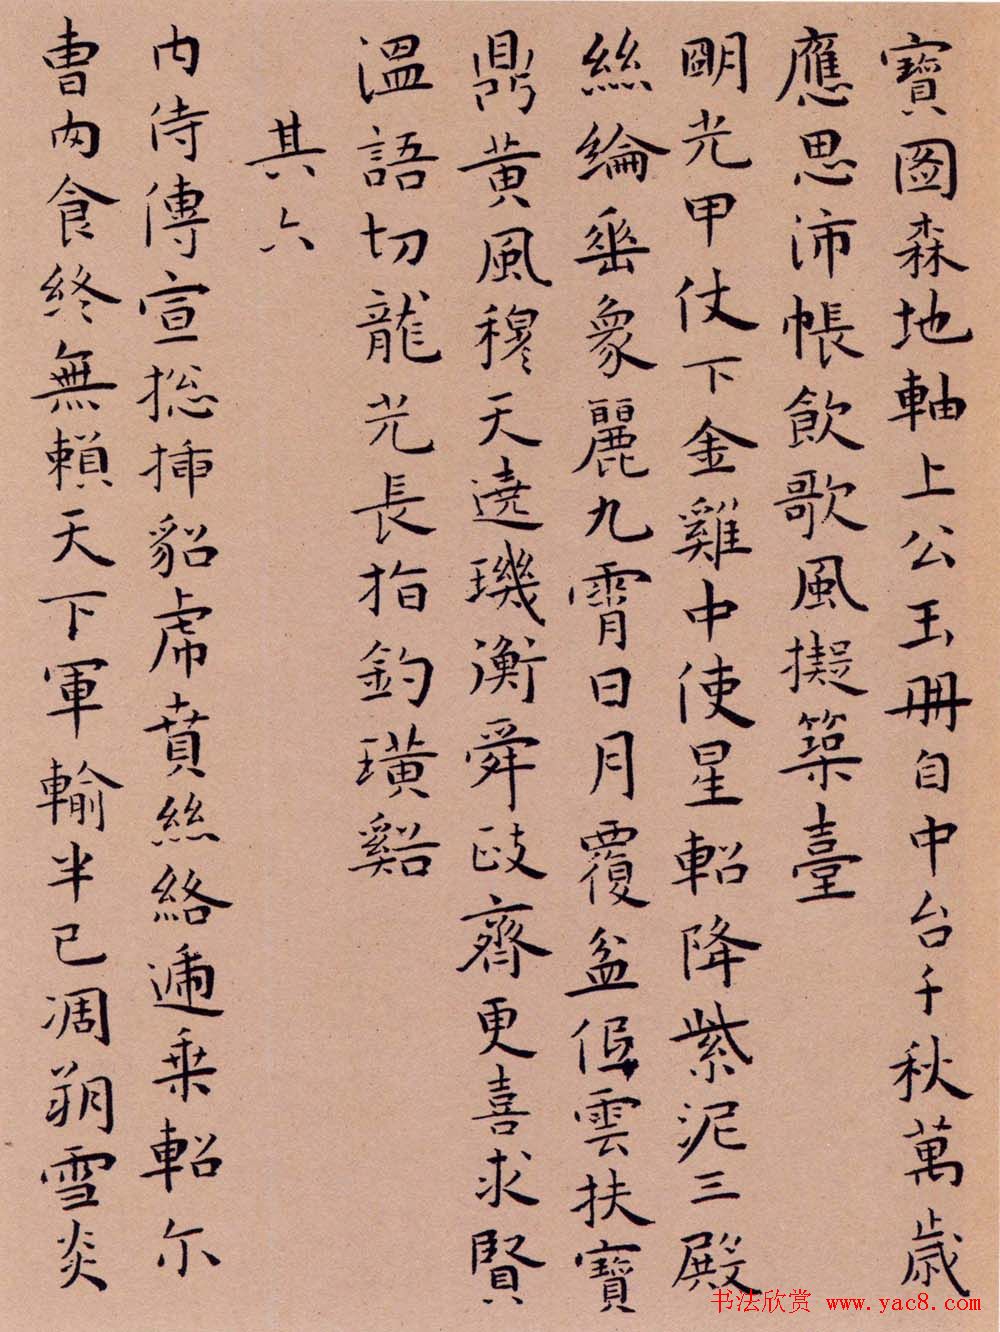 寶圖森地軸上公玉冊自中台千秋萬歲
應思沛帳飲歌風擬築臺
明光甲仗下金雞中使星軺降紫泥三殿
絲綸垂象麗九霄日月覆盆低雲扶寶
鼎黃風穆天遶璣衡舜政齊更喜求賢
溫語切龍光長指釣璜谿
其六
內侍傳宣捴插貂虎賁絲絡遞乘軺尓
曹肉食終無賴天下軍輸半已凋朔雪炎
书法欣赏 www.yac8.com